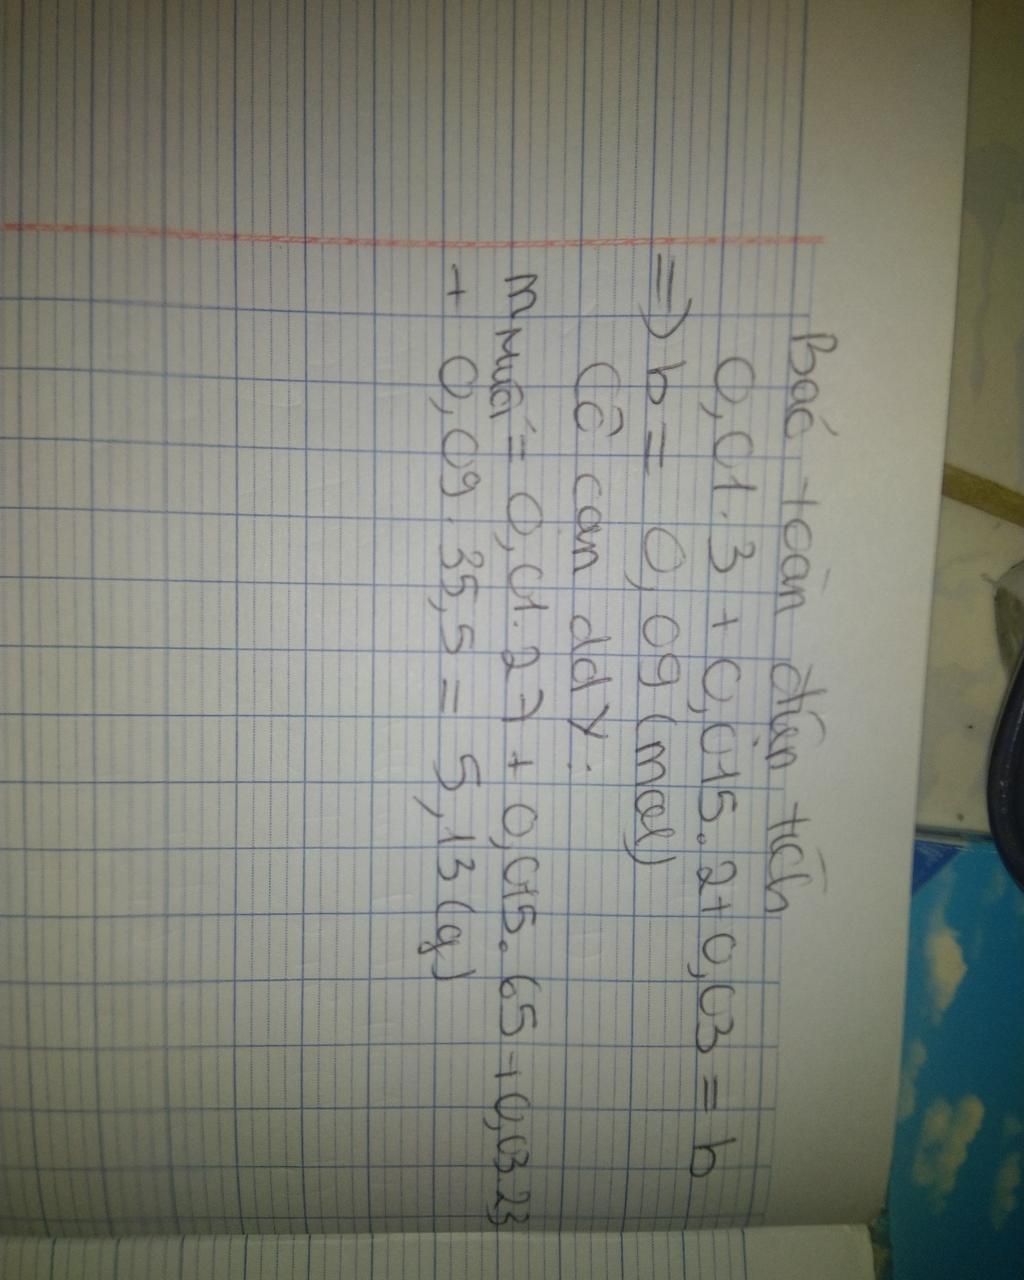 Bảo toàn điện tích
0,01.3 + 0,015.2+0,03 = b
=) b = 0,09 (mol)
Cô cạn ddY:
m muối = 0,01.27 + 0,015.65 + 0,03.23
+ 0,09.35,5 = 5,13 (g)